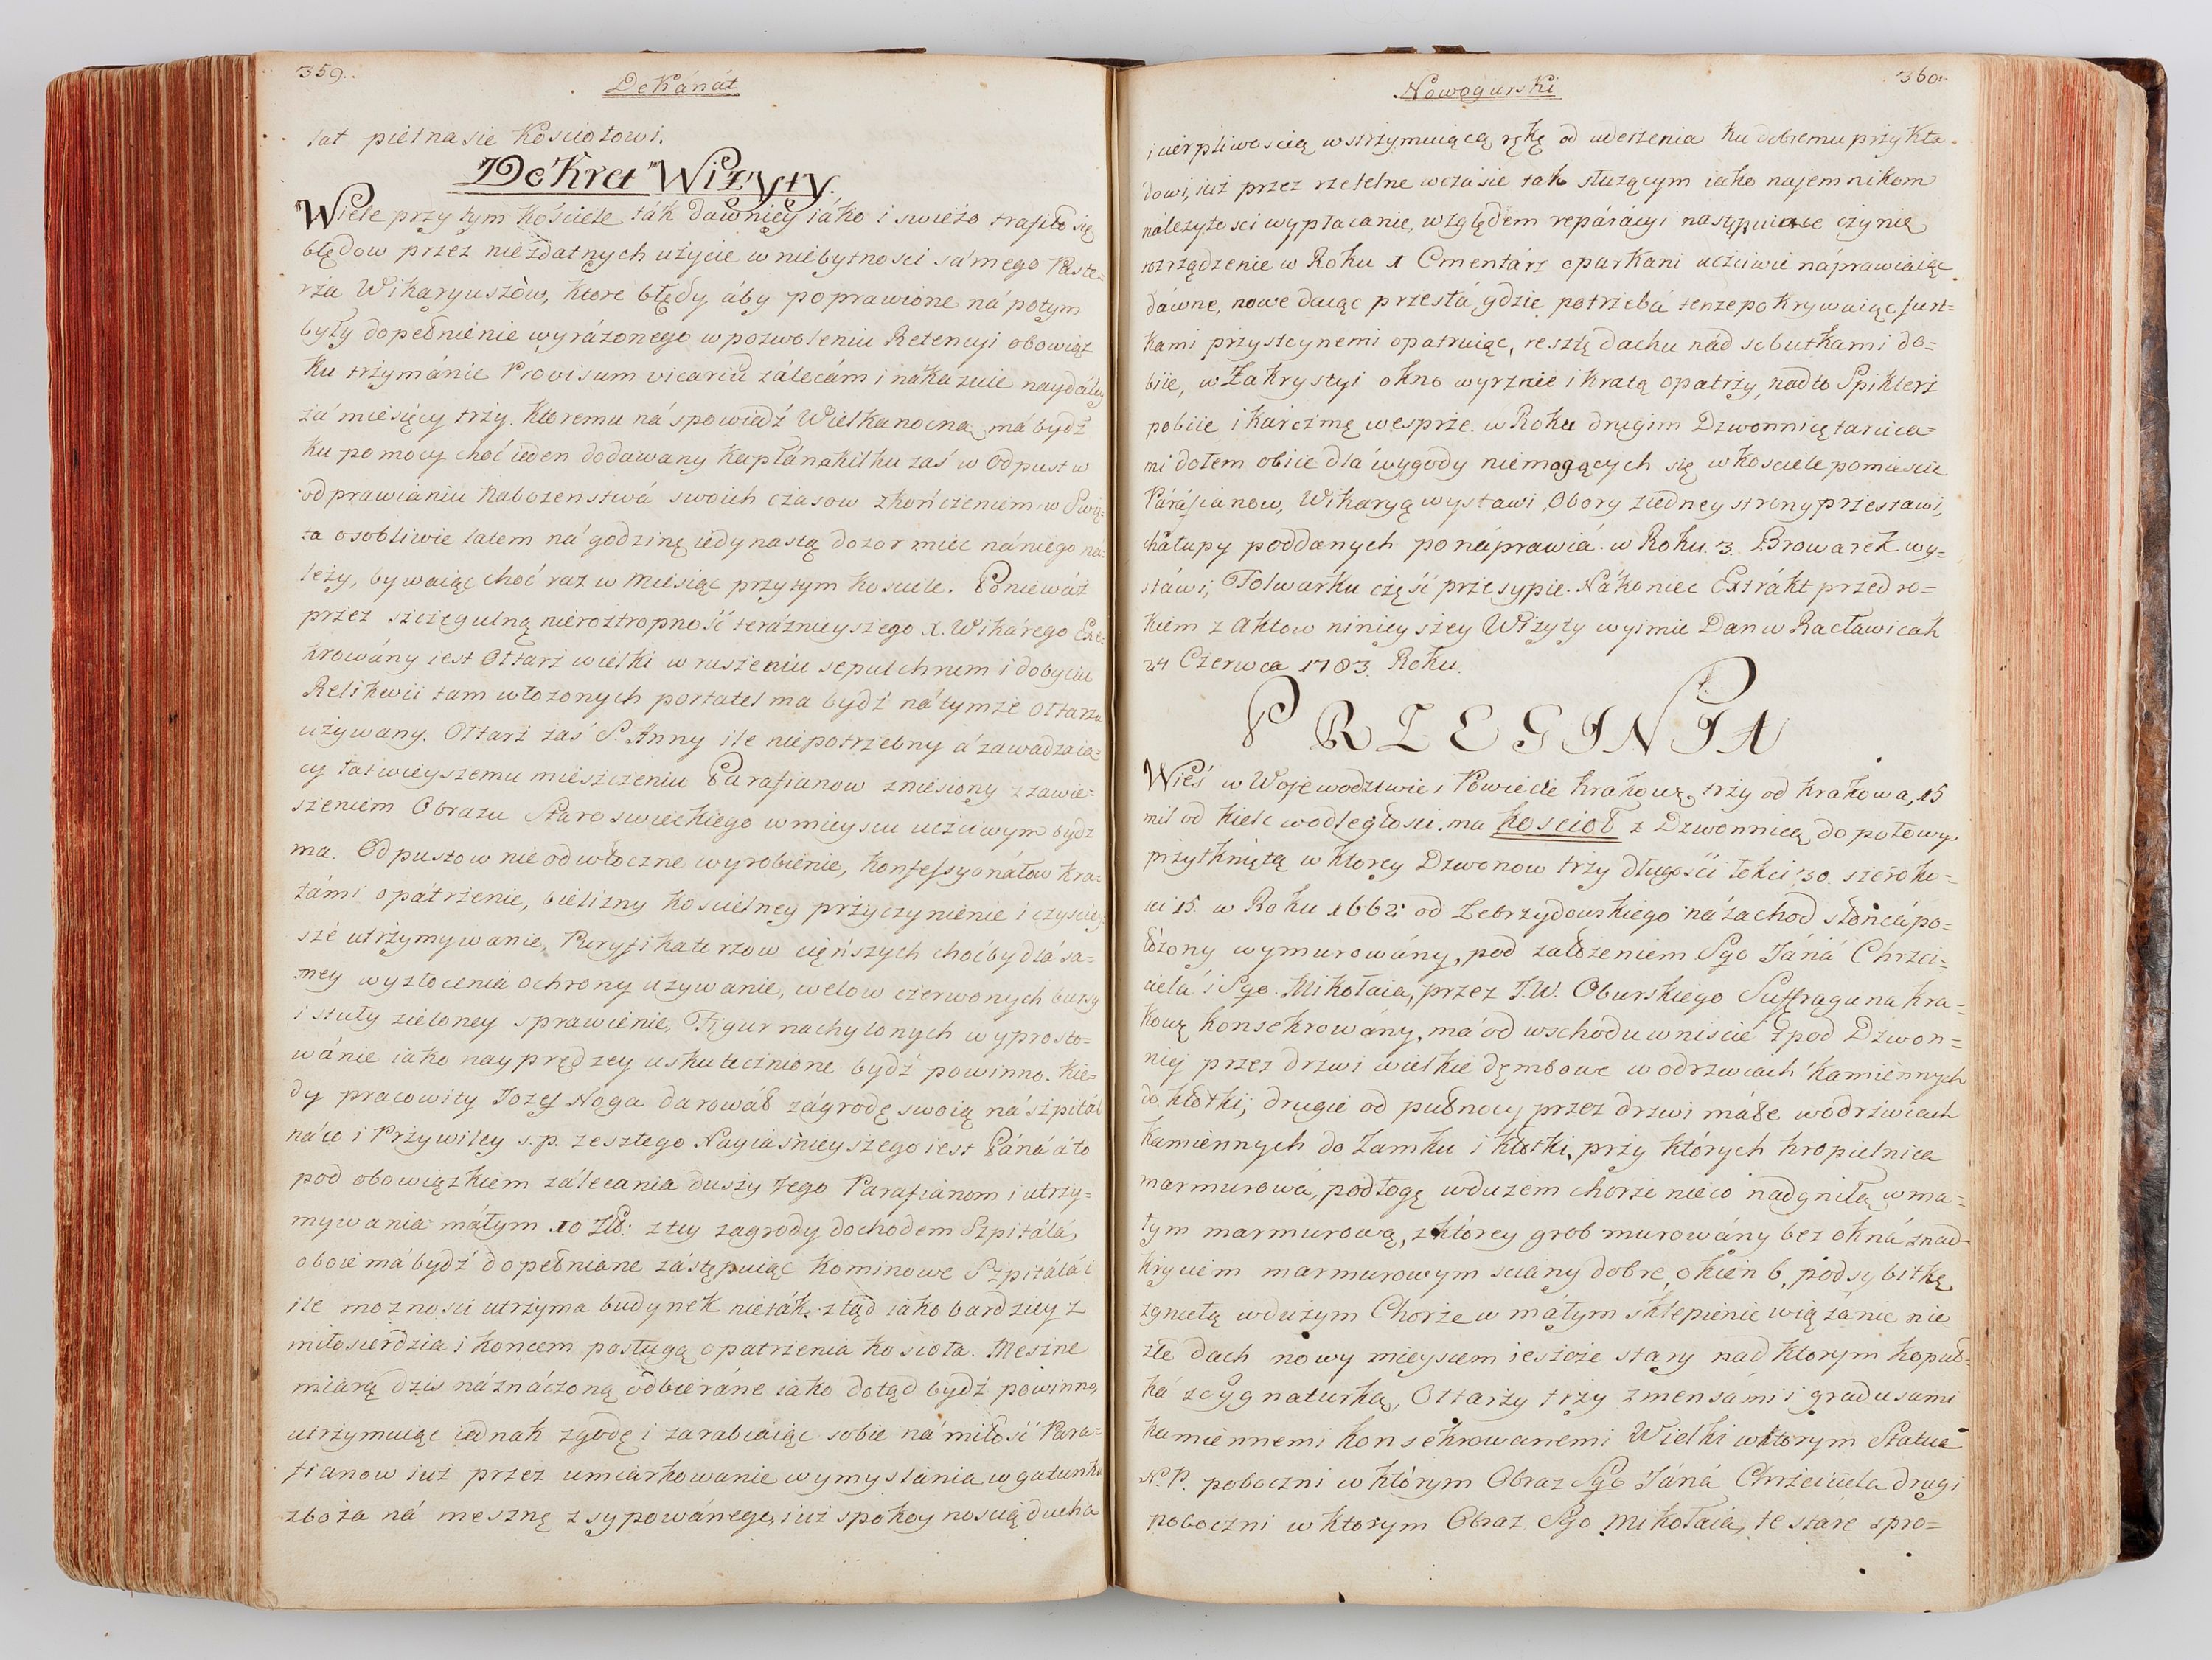 359.
DeKánát
lat pietnasie Kosciołowi.
DeKret Wizyty.
Wiele przy tym Kościele ták dawniey iáko i swieżo trafiło się
błędow przez nieżdatnych użycie w niebytnosci sámego Paste=
rza Wikaryuszòw, ktore błędy áby poprawione nápotym
były dopełnienie wyráżonego w pozwoleniu Retencyi obowiąz
ku trzymánie Provisum vicariu zálecám i nákazuie naydáley
zá miesięcy trzy. Ktoremu ná spowiedź Wielkanocną má bydź
ku pomocy choć ieden dodawany Kapłán á kilku zaś w Odpust w
odprawianiu Nabożenstwá swoich czasow zkończeniem w Swię=
ta osobliwie latem ná godzinę iedynastą dozor miec nániego na=
leży, bywaiąc choć raz w miesiąc przytym Kosciele. Poniewáż
przez szczegulną nieroztropność teráźnieyszego X. Wikárego Exe=
krowány iest Ołtarz wielki w ruszeniu sepulchrum i dobyciu
Relikwii tam włożonych portatel ma bydź ná tymże Ołtarzu
używany. Ołtarz zaś S. Anny ile niepotrzebny á zawadzaią=
cy łatwieyszemu mieszczeniu Parafianow zniesiony z zawie=
szeniem Obrazu Staroswieckiego w mieyscu uczciwym bydź
ma. Odpustow nieodwłoczne wyrobienie, Konfessyonáłow Kra=
támi opátrzenie, bielizny Koscielney przyczynienie i czyściey=
szé utrzymywanie, Puryfikaterzow cięńszych choćby dlá sa=
mey wyzłocenia ochrony używanie, welow czerwonych bursy
i stuły zieloney sprawienie, Figur nachylonych wyprosto=
wánie iako nayprędzey uskutecznione bydź powinno. Kie=
dy pracowity Jozef Noga darowáł zágrodę swoią ná szpitál
náco i Przywiley s.p. zeszłego Nayiásnieyszego iest Páná á to
pod obowiązkiem zálecania duszy Jego Parafianom i utrzy=
mywania máłym 10 Zł: ztey zagrody dochodem Szpitálá,
oboie má bydź dopełniane zástępuiąc Kominowe Szpitálá i
ile możnosci utrzyma budynek nieták ztąd iako bardziey z
miłosierdzia i koncem posługą opatrzenia kosciola. Meszne
miárą dziś náznáczoną odbieráne iako dotąd bydź powinno,
utrzymuiąc iednak zgodę i zarabiaiąc sobie ná miłość Para=
fianow iuż przez umiarkowanie wymyslánia w gatunku
zboża ná mesznę zsypowánego, iuż spokoynoscią ducha
Nowogurski
360.
i cierpliwoscią wstrzymuiącą rękę od uderzenia ku dobremu przykła
dowi, iuż przez rzetelne wczasie tak służącym iako najemnikom
należytosci wypłacanie, względem repáracyi nástępuiące czynię
rozrządzenie w Roku 1 Cmentárz oparkani uczciwie náprawiaiąc
dáwne, nowe daiąc przesłá gdzie potrzebá tenże pokrywaiąc furt=
kami przystoynemi opatruiąc, resztę dachu nád sobutkami do=
biie, w Zakrystyi okno wyrznie i kratą opatrzy, nadto Spiklerz
pobiie i karczmę wesprze. w Roku drugim Dzwonnicę tarcica=
mi dołem obiie dlá wygody niemogących się w kosciele pomiescic
Páráfianow, Wikaryą wystawi, Obory ziedney strony przestawi,
chałupy poddanych ponáprawiá. w Roku. 3. Browarek wy=
stáwi, Folwarku część przesypie. Nákoniec Extrákt przed ro=
kiem z Aktow ninieyszey Wizyty wyimie Dan w Racławicách
24 Czerwca 1783. Roku.
PRZEGINIA
Wieś w Wojewodztwie i Powiecie Krakows. trzy od Krakowa, 15
mil od Kielc wodległosci. ma Kościoł z Dzwonnicą do połowy
przytkniętą w ktorey Dzwonow trzy długości łokci 30. szeroko=
sci 15. w Roku 1662 od Zebrzydowskiego ná zachod słońca po=
łożony wymurowány, pod założeniem Sgo Jáná Chrzci=
cielá i Sgo. Mikołaia, przez J.W. Oburskiego Suffragana Kra=
kows. Konsekrowány, má od wschodu wniscie spod Dzwon=
nicy przez drzwi wielkie dęmbowe w odrzwiach Kamiennych
do kłotki, drugie od pułnocy przez drzwi máłe w odrzwiach
Kamiennych do Zamku i kłotki, przy których kropielnica
marmurowá, podłogę wdużem chorze nieco nadgniłą w ma=
łym marmurową, z którey grob murowány bez okná z nad=
kryciem marmurowym sciány dobre, okien 6, podsybitkę
zgnietą wdużym Chorze w máłym sklepienie wiązanie nie
złe dach nowy mieyscem ieszcze stáry nad ktorym Kopuł=
ká zsygnaturką, Ołtarzy trzy z mensámi i gradusami
Kamiennemi Konsekrowanemi Wielki wktorym Statua
N.P. poboczni w którym Obraz Sgo Jáná Chrzciciela drugi
poboczni w ktorym Obraz Sgo Mikołaia, te stáre spro=